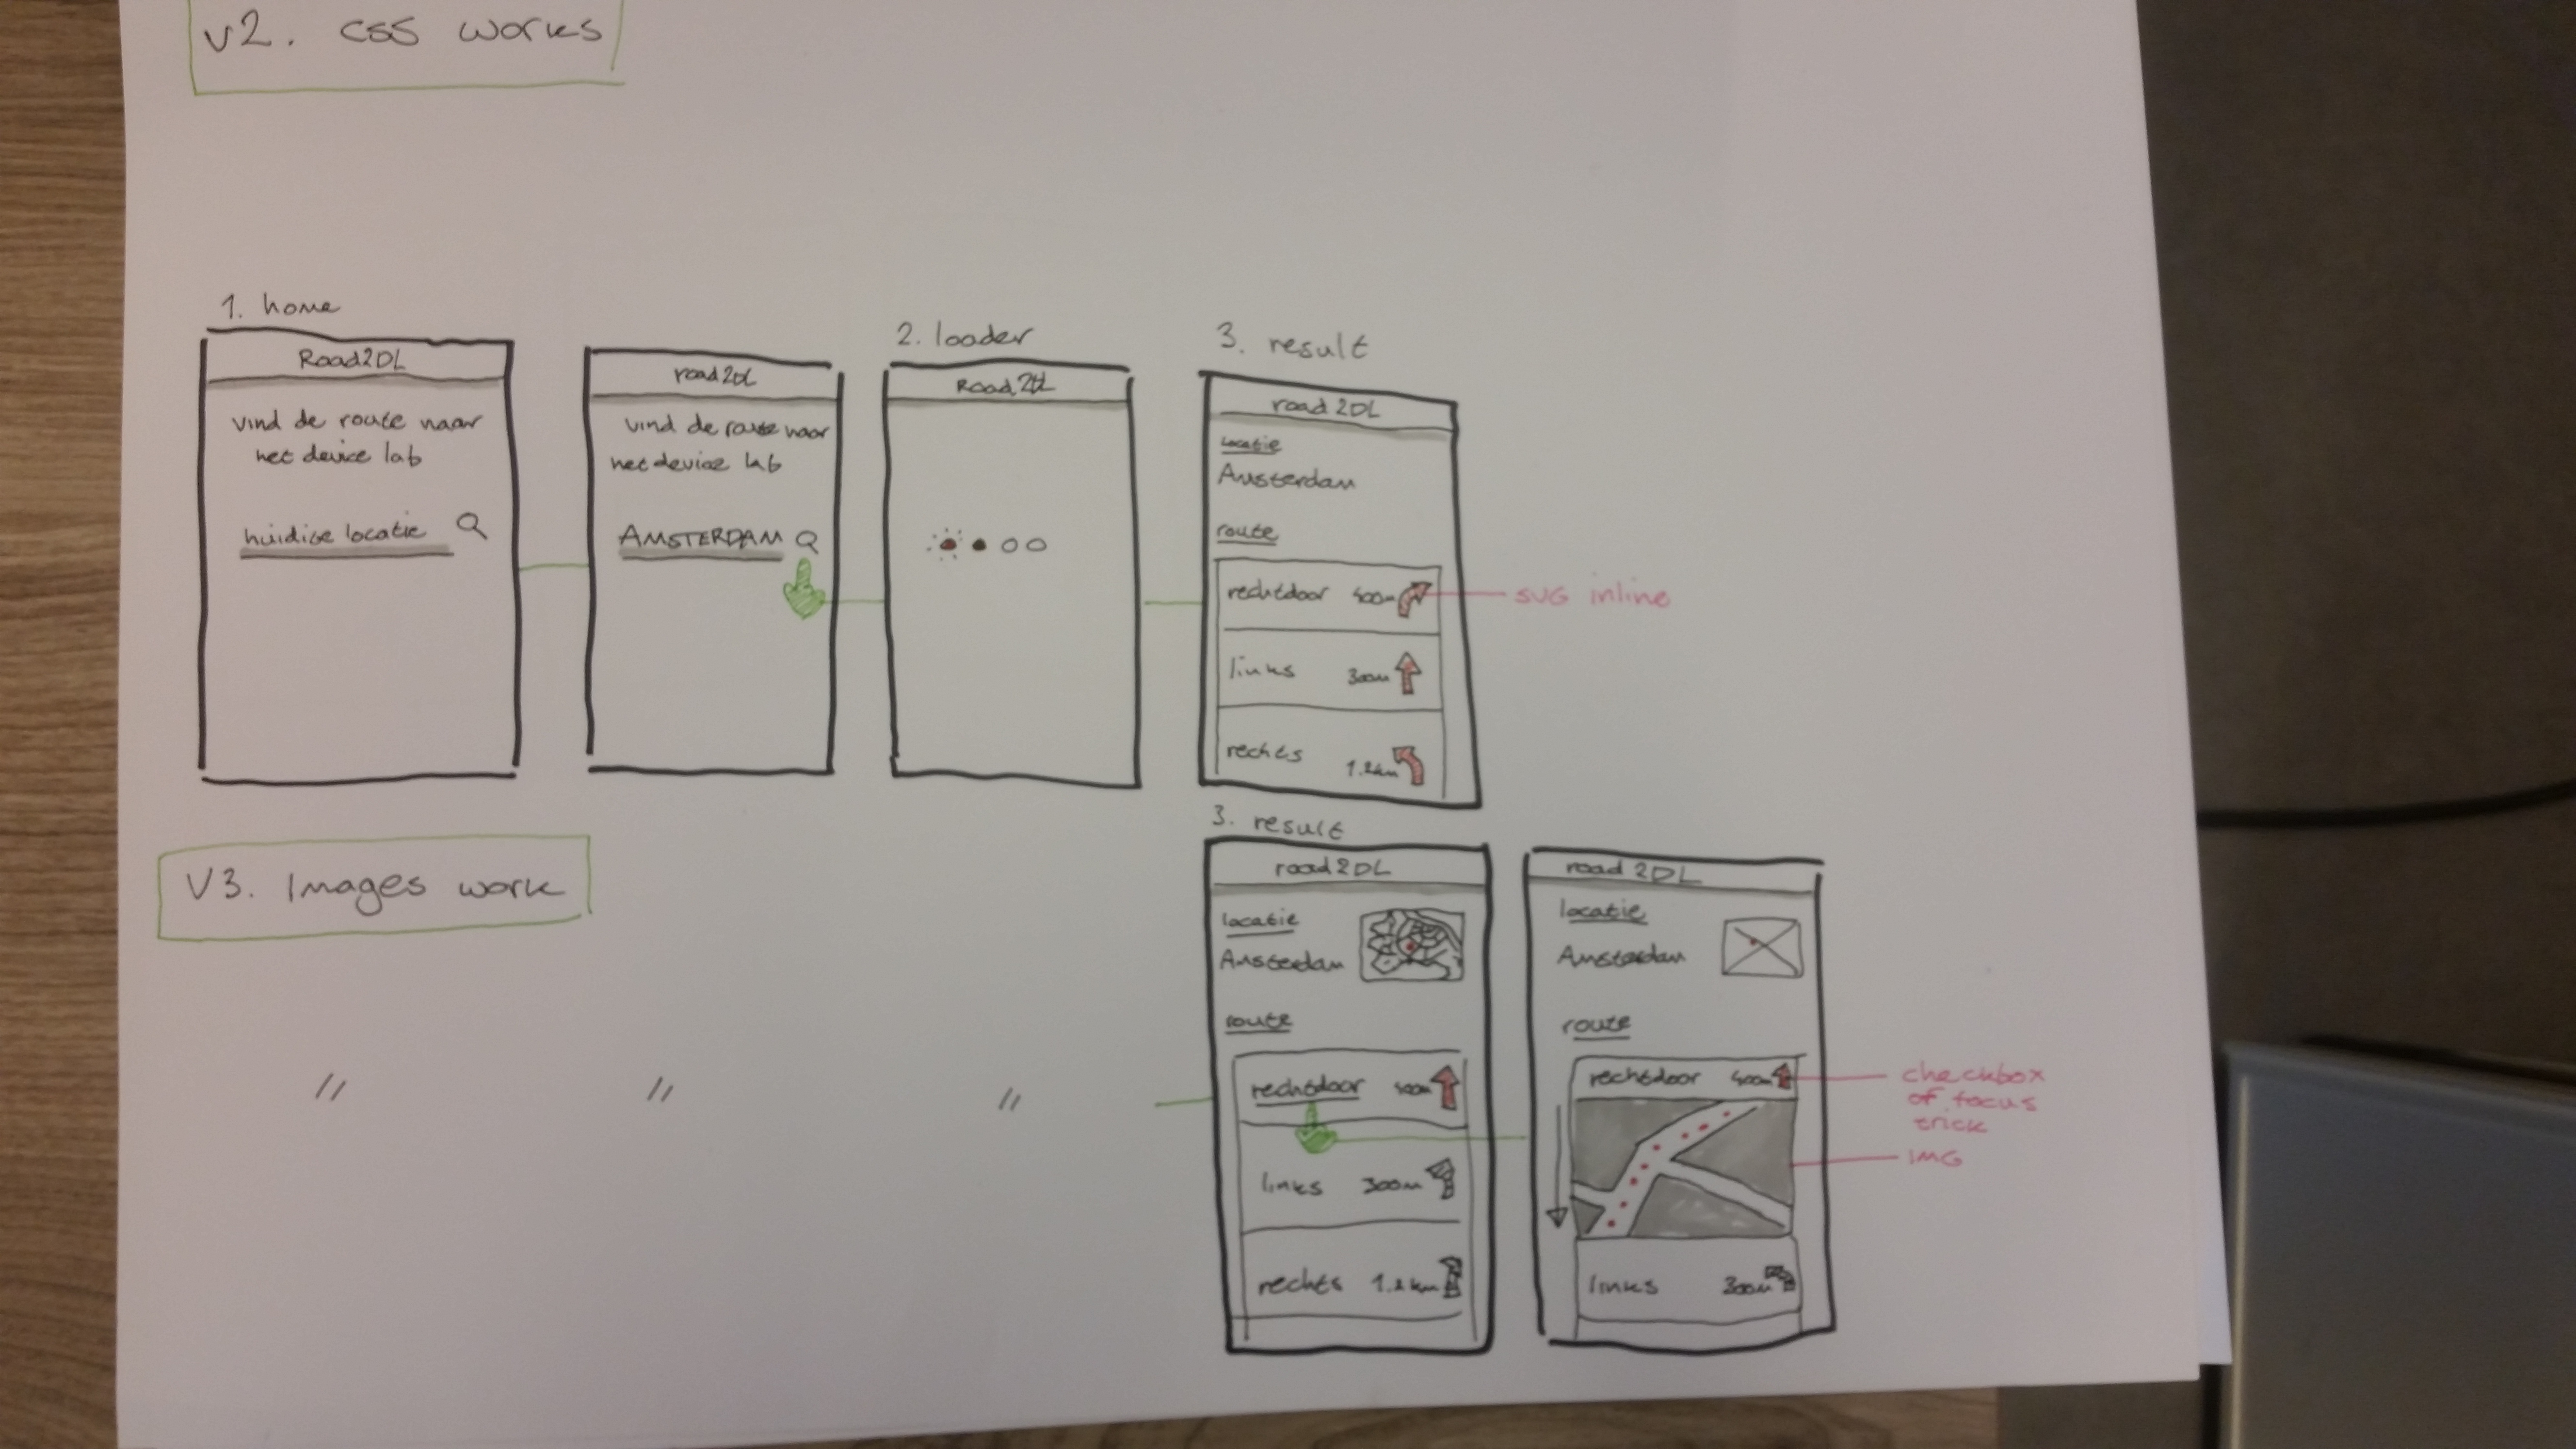 V2. CSS works
1. home
Road2DL
vind de route naar
het device lab
huidige locatie
road2DL
vind de route naar
het device lab
AMSTERDAM
2. loader
Road2DL
3. result
road2DL
locatie
Amsterdam
route
rechtdoor 400m
links 300m
rechts 1.2km
SVG inline
V3. Images work
"
"
"
3. result
road2DL
locatie
Amsterdam
route
rechtdoor 400m
links 300m
rechts 1.2km
road2DL
locatie
Amsterdam
route
rechtdoor 400m
links 300m
checkbox
of focus
trick
IMG